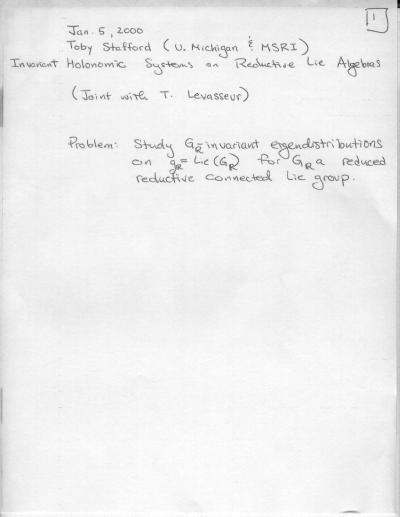 1
Jan. 5, 2000
Toby Stafford (U. Michigan & MSRI)
Invariant Holonomic Systems on Reductive Lie Algebras
(Joint with T. Levasseur)
Problem: Study G_R-invariant eigendistributions
on g_R = Lie(G_R) for G_R a reduced
reductive connected Lie group.